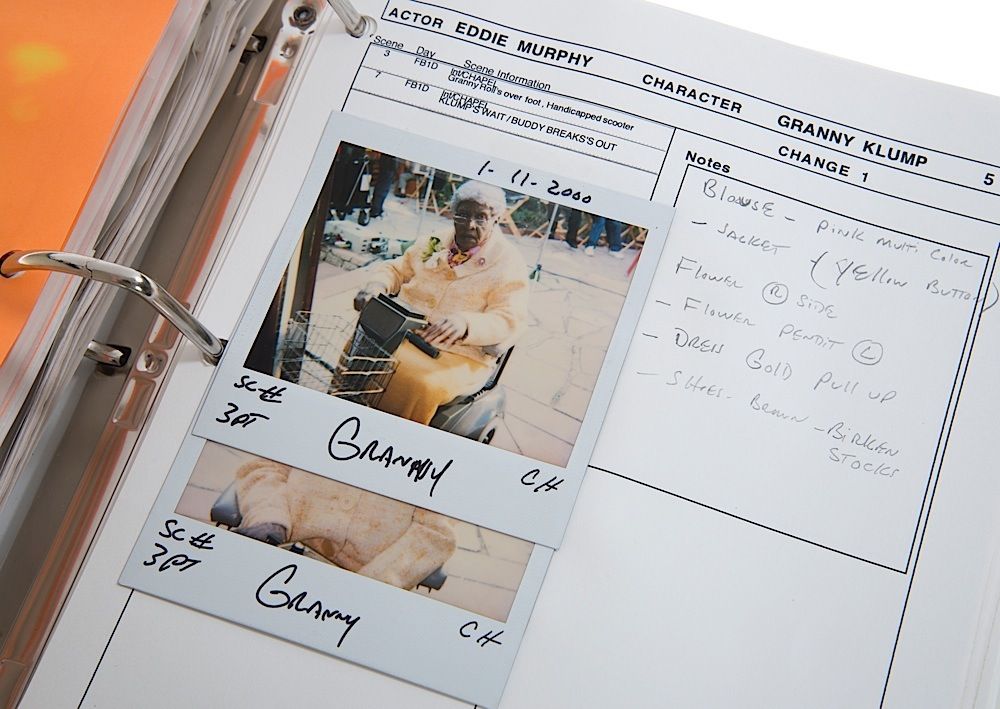 ACTOR EDDIE MURPHY CHARACTER GRANNY KLUMP 5
CHANGE 1
Scene Day Scene Information
3 FB1D Int/CHAPEL
Granny Roll's over foot, Handicapped scooter
7 FB1D Int/CHAPEL
KLUMP'S WAIT / BUDDY BREAKS'S OUT
Notes
BLOUSE - PINK MULTI COLOR
- JACKET (YELLOW BUTTON)
FLOWER R SIDE
- FLOWER PENDIT L
- DRESS GOLD PULL UP
- SHOES - BROWN - BIRKEN
STOCKS
1-11-2000
SC#
3PT
GRANNY
CH
SC#
3PT
GRANNY
CH